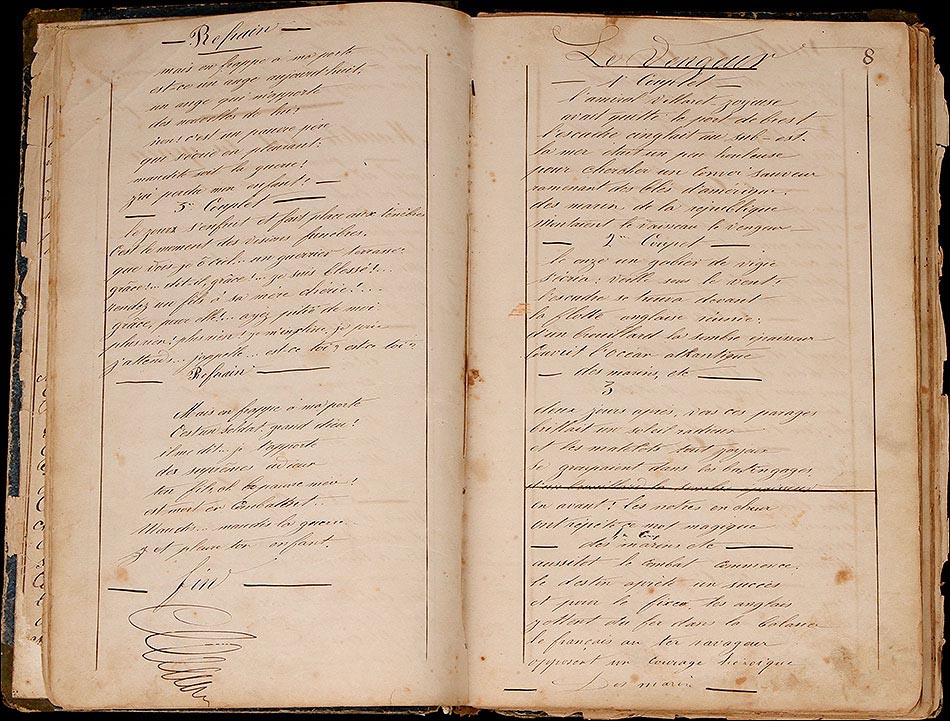 Refrain
mais on frappe à ma porte
est-ce un ange aujourd'huit
un ange qui m'apporte
des nouvelles de lui?
non! c'est un pauvre père
qui s'écrie en pleurant:
maudite soit la guerre!
j'ai perdu mon enfant!
3e Couplet
le jour s'enfuit et fait place aux ténèbres
C'est le moment des visions funèbres.
que vois-je ô ciel... un guerrier terrassé
grâce!.. dit-il, grâce!... je suis blessé!...
rendez un fils à sa mère chérie!...
grâce, pour elle!... ayez pitié de moi
plus rien! plus rien! je
j'attends... j'appelle... est-ce toi? est-ce toi?
Refrain
Mais on frappe à ma porte
C'est un soldat grand dieu!
il me dit... je t'apporte
des suprêmes adieux
ton fils, oh! pauvre mère!
est mort en combattant...
Maudis... maudis la guerre
et pleure ton enfant.
fin
Le Vengeur
8
1er Couplet
l'amiral villaret joyeuse
avait quitté le port de brest
l'escadre cinglait au sud-est
la mer était un peu houleuse
pour chercher un convoi sauveur
ramenant des blés d'amérique
des marins de la république
montaient le vaisseau le vengeur
2me Couplet
le onze un gabier de vigie
s'écria: voile sous le vent!
l'escadre se trouva devant
la flotte anglaise réunie.
d'un brouillard la sombre épaisseur
couvrit l'océan atlantique
des marins, etc
3
deux jours après, vers ces parages
brillait un soleil radieux
et les matelots tout joyeux
se groupaient dans les bastengages
d'un brouillard la sombre épaisseur
en avant! les notres en chœur
ont répété ce mot magique
des marins etc
4e Coup
aussitôt le combat commence.
le destin aprête un succès
et pour le fixer les anglais
jettent du fer dans la balance
le français au fer ravageur
opposent un courage héroïque
Des marin